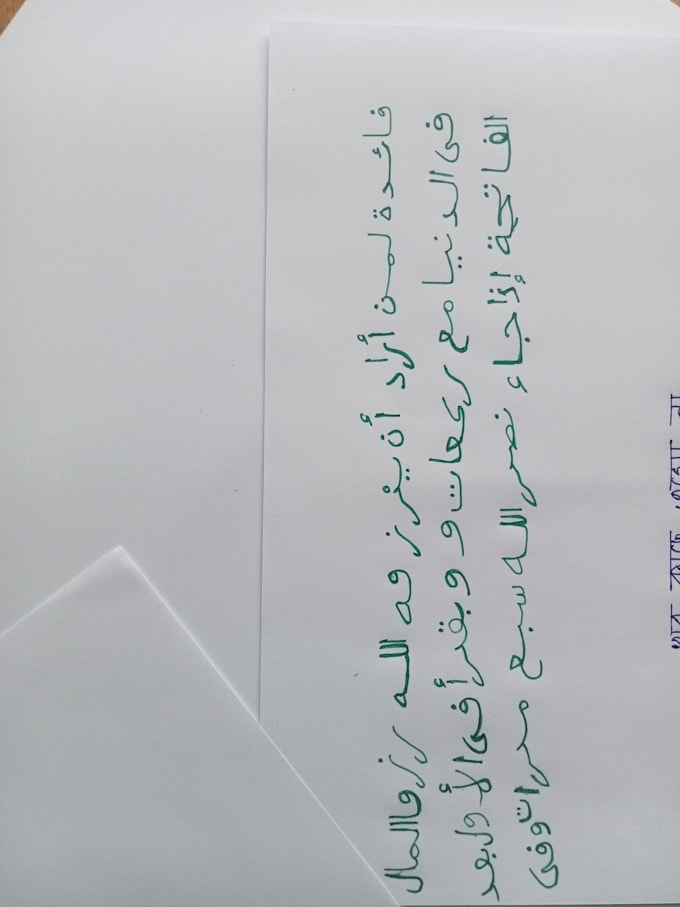 فائدة لمن أراد أن يغرزقه الله رزقا المال
فى الدنيا مع ركعات و ويقرأ فى الأول بعد
الفاتحة إذا جاء نصر الله سبع مرات وفى